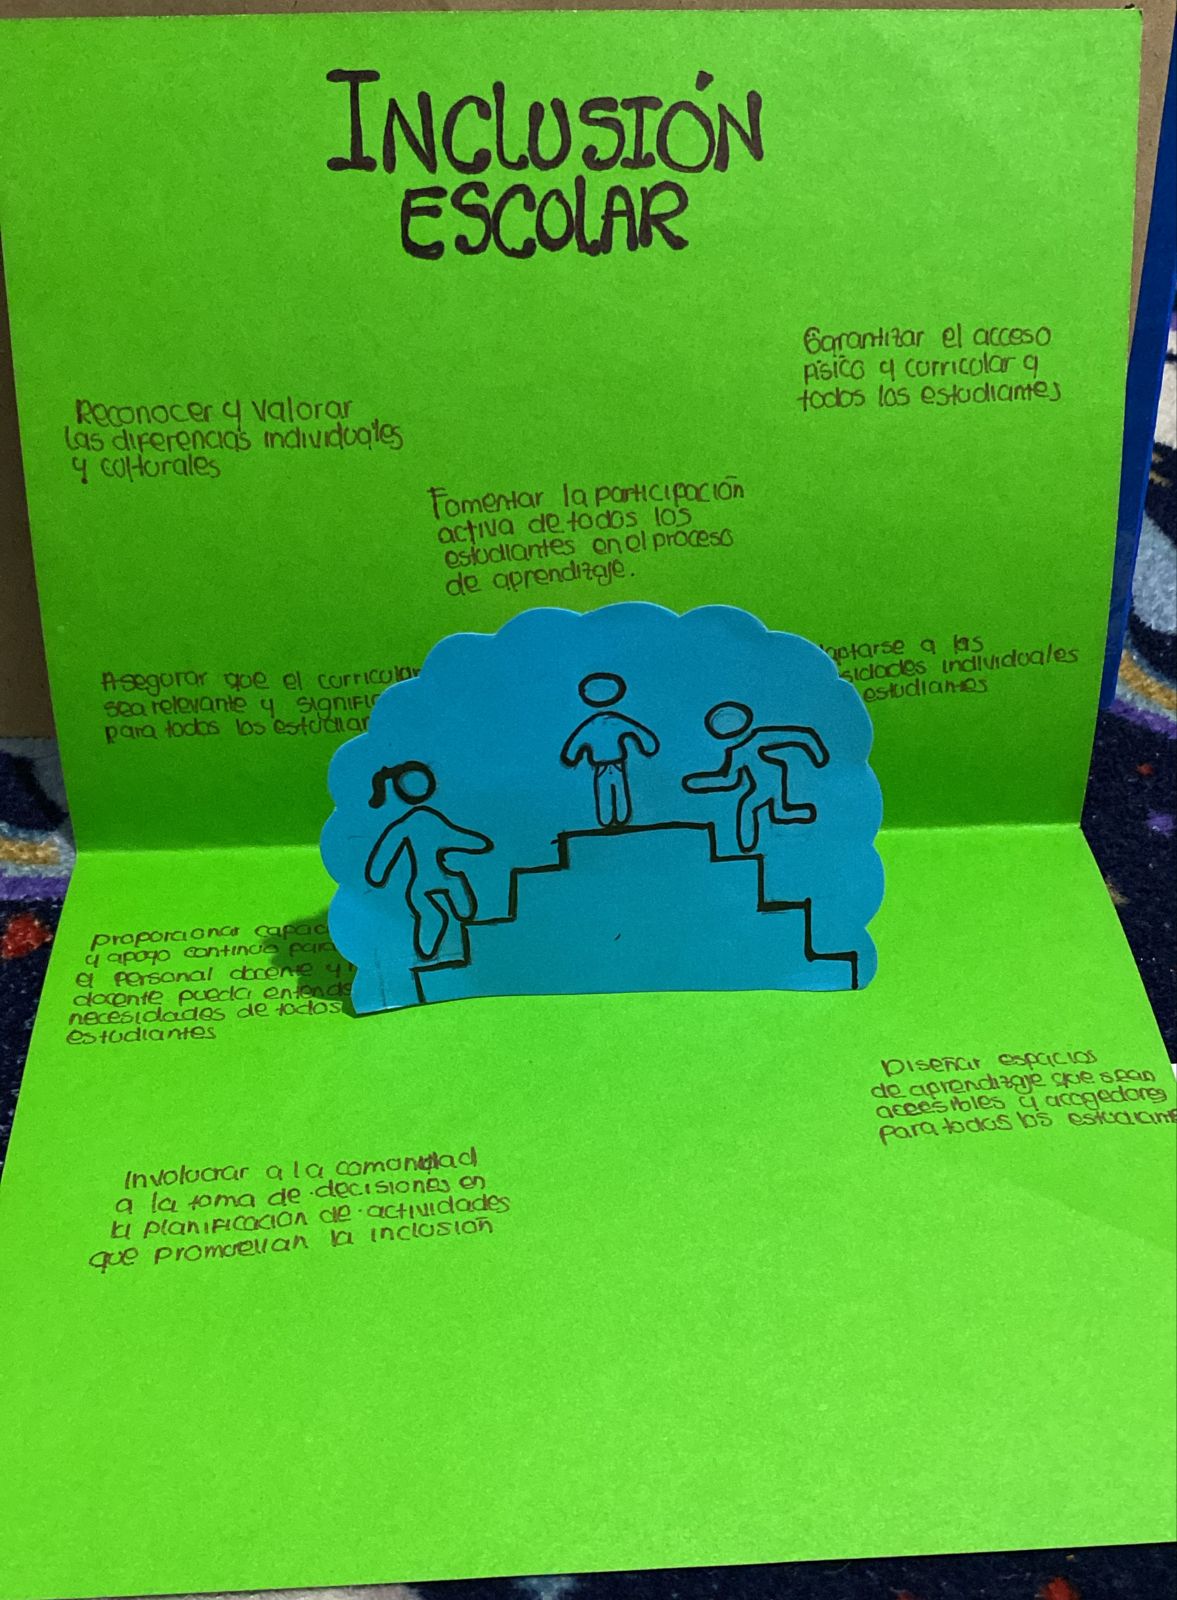 INCLUSIÓN
ESCOLAR
Garantizar el acceso
físico y curricular a
todos los estudiantes
Reconocer y valorar
las diferencias individuales
y culturales
Fomentar la participación
activa de todos los
estudiantes en el proceso
de aprendizaje.
Asegurar que el curricular
sea relevante y
para todos los
a las
individuales
estudiantes
proporcionar
y apoyo continuo para
el personal docente y
docente pueda
necesidades de todos
estudiantes
Diseñar espacios
de aprendizaje que sean
accesibles y acogedores
para todos los
Involucrar a la comunidad
a la toma de decisiones en
la planificación de actividades
que promuevan la inclusión